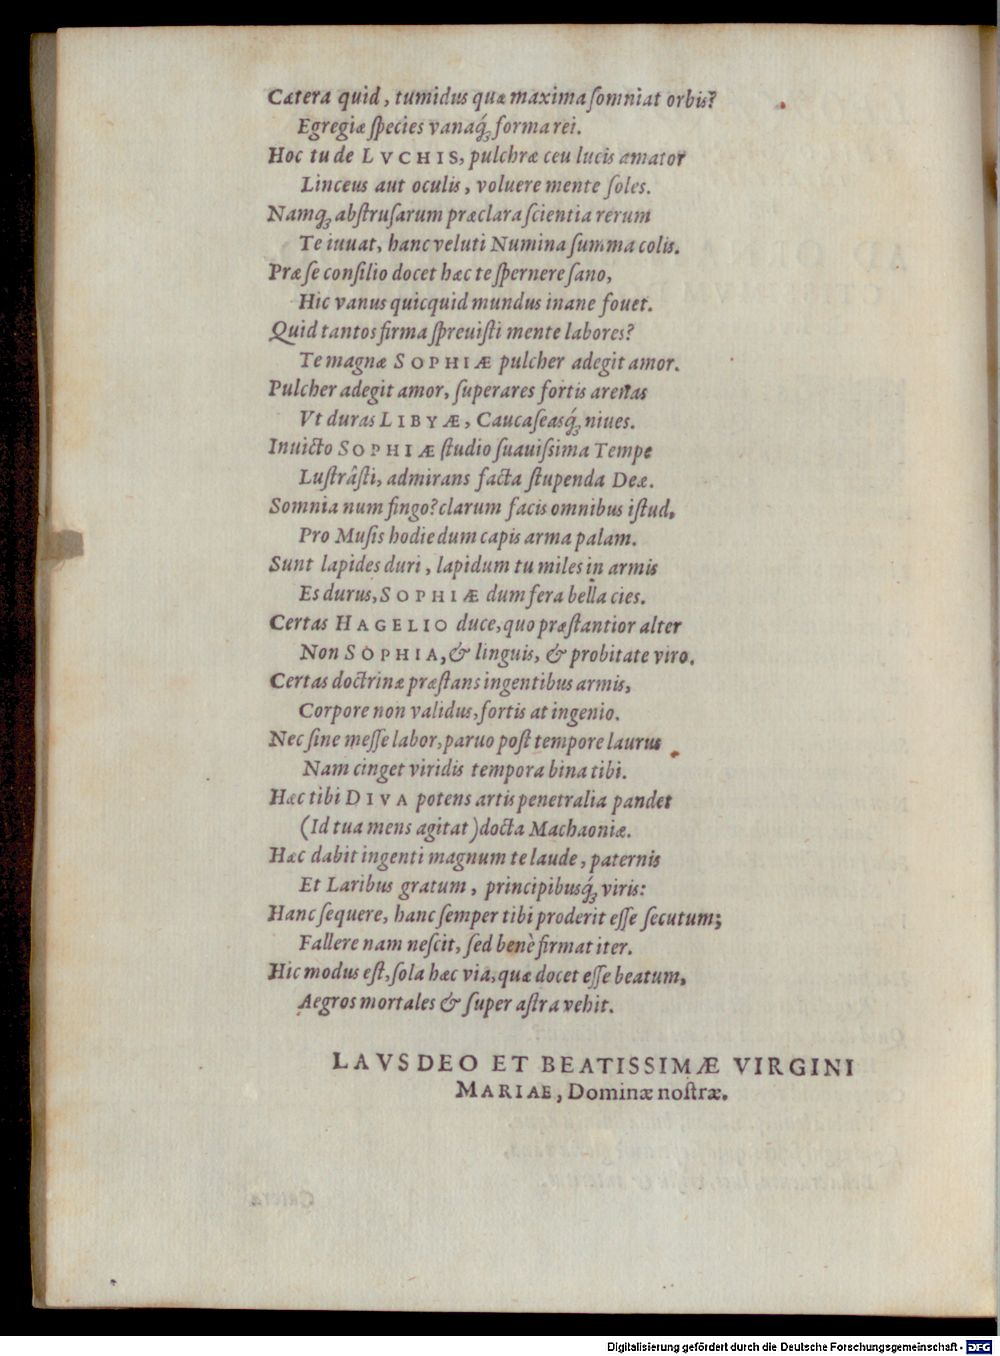 Cætera quid, tumidus quæ maxima ſomniat orbis?
Egregiæ ſpecies vanaq́ꝫ forma rei.
Hoc tu de LVCHIS, pulchræ ceu lucis amator
Linceus aut oculis, voluere mente ſoles.
Namqꝫ abſtruſarum præclara ſcientia rerum
Te iuuat, hanc veluti Numina ſumma colis.
Præ ſe conſilio docet hæc te ſpernere ſano,
Hic vanus quicquid mundus inane fouet.
Quid tantos firma ſpreuiſti mente labores?
Te magnæ SOPHIÆ pulcher adegit amor.
Pulcher adegit amor, ſuperares fortis arenas
Vt duras LIBYÆ, Caucaſeasq́ꝫ niues.
Inuicto SOPHIÆ ſtudio ſuauiſsima Tempe
Luſtrâſti, admirans facta ſtupenda Deæ.
Somnia num fingo? clarum facis omnibus iſtud,
Pro Muſis hodie dum capis arma palam.
Sunt lapides duri, lapidum tu miles in armis
Es durus, SOPHIÆ dum fera bella cies.
Certas HAGELIO duce, quo præſtantior alter
Non SOPHIA, & linguis, & probitate viro.
Certas doctrinæ præſtans ingentibus armis,
Corpore non validus, fortis at ingenio.
Nec ſine meſſe labor, paruo poſt tempore laurus
Nam cinget viridis tempora bina tibi.
Hæc tibi DIVA potens artis penetralia pandet
(Id tua mens agitat) docta Machaoniæ.
Hæc dabit ingenti magnum te laude, paternis
Et Laribus gratum, principibusq́ꝫ viris:
Hanc ſequere, hanc ſemper tibi proderit eſſe ſecutum;
Fallere nam neſcit, ſed benè firmat iter.
Hic modus eſt, ſola hæc via, quæ docet eſſe beatum,
Aegros mortales & ſuper aſtra vehit.
LAVS DEO ET BEATISSIMÆ VIRGINI
MARIAE, Dominæ noſtræ.
Digitalisierung gefördert durch die Deutsche Forschungsgemeinschaft - DFG